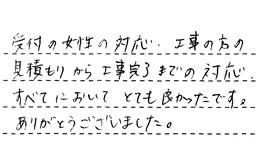 受付の女性の対応、工事の方の
見積もりから工事完了までの対応、
すべてにおいてとても良かったです。
ありがとうございました。